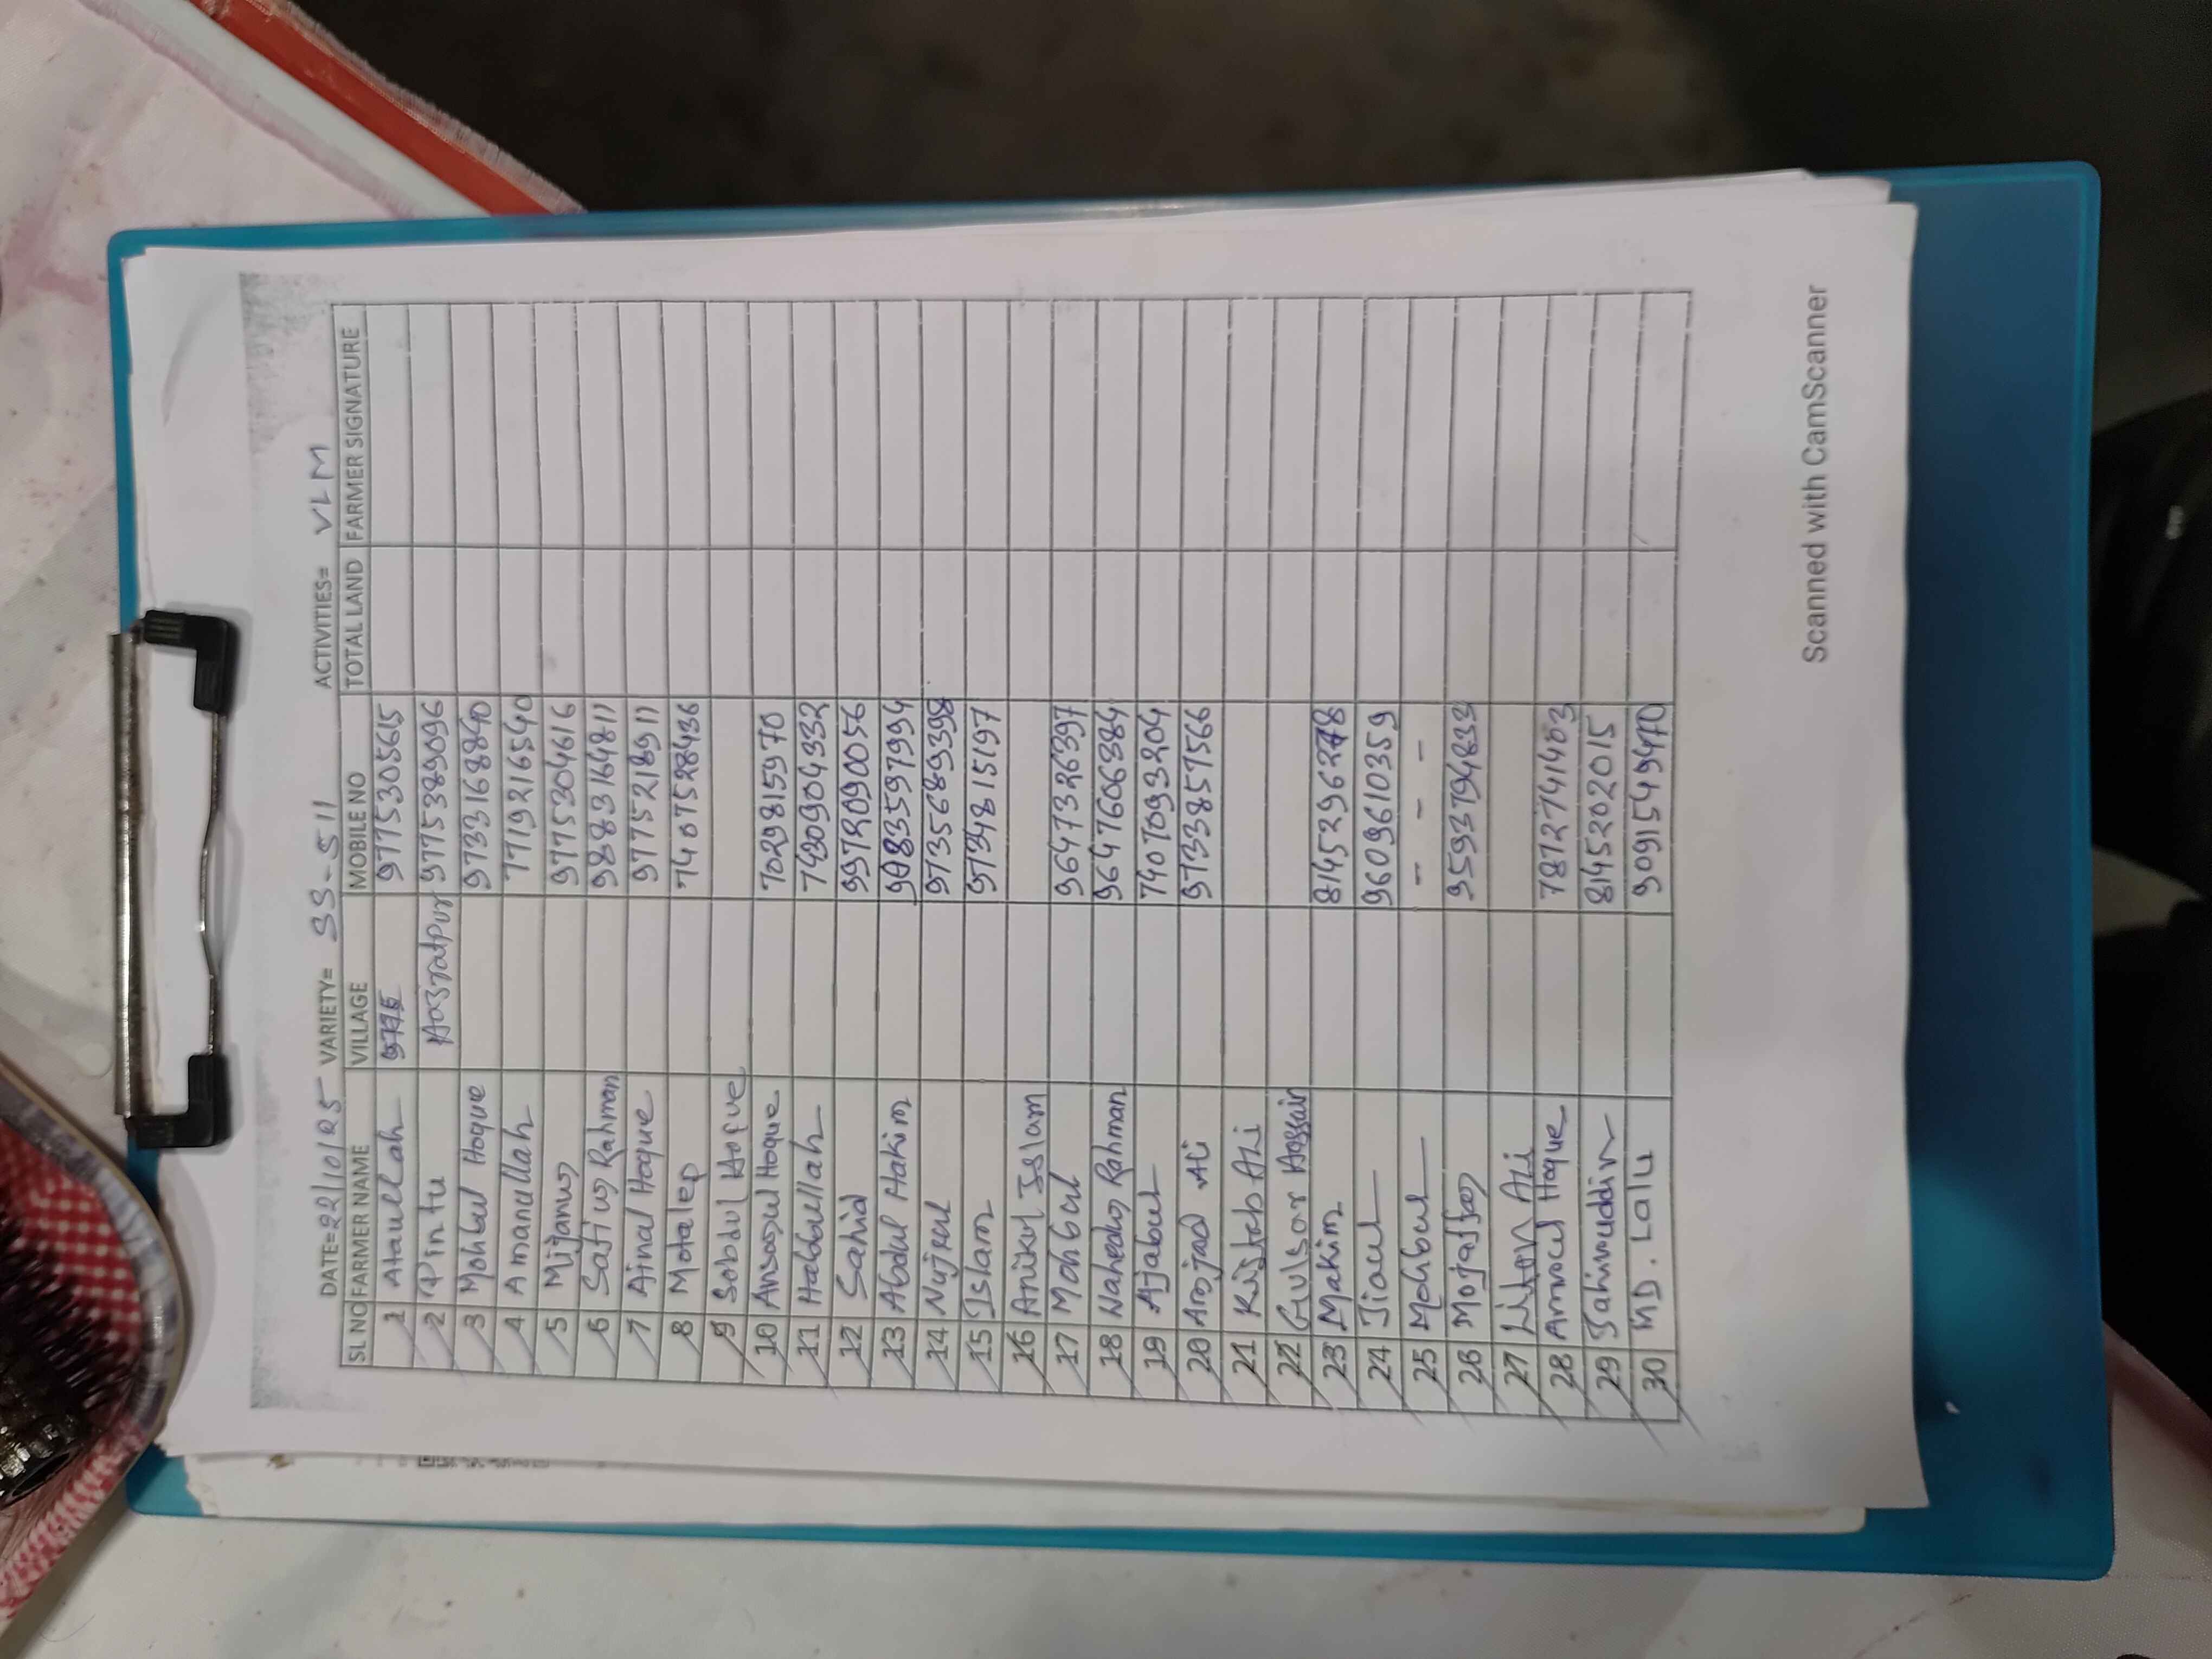 DATE=22/10/25 VARIETY= SS-511 ACTIVITIES= VLM
SL NO FARMER NAME VILLAGE MOBILE NO TOTAL LAND FARMER SIGNATURE
1 Ataullah 9775305615
2 Pintu 9775389096
3 Mohbul Hoque 9733168840
4 Amanullah 7719216540
5 Mijanur 9775304616
6 Satiur Rahman 9883164811
7 Ajnal Hoque 9775218911
8 Motalep 7407528436
9 Sobdul Hoque
10 Ansarul Hoque 7029815970
11 Habbullah 7430904332
12 Sahid 9972090056
13 Abdul Hakim 9883597994
14 Nujrul 9735689398
15 Islam 9734815197
16 Anikul Islam
17 Mohbul 9647326397
18 Nahedur Rahman 9647606384
19 Ajabul 7407093204
20 Arojad Ali 9733857566
21 Kristab Ali
22 Gulsar Hossain
23 Makim 8145296278
24 Jiaul 9609610359
25 Mohbul - - - -
26 Mojaffar 9593794833
27 Liton Ali
28 Amocul Hoque 7872741403
29 Jahinuddin 8145202015
30 MD. Lalu 9091549470
Scanned with CamScanner